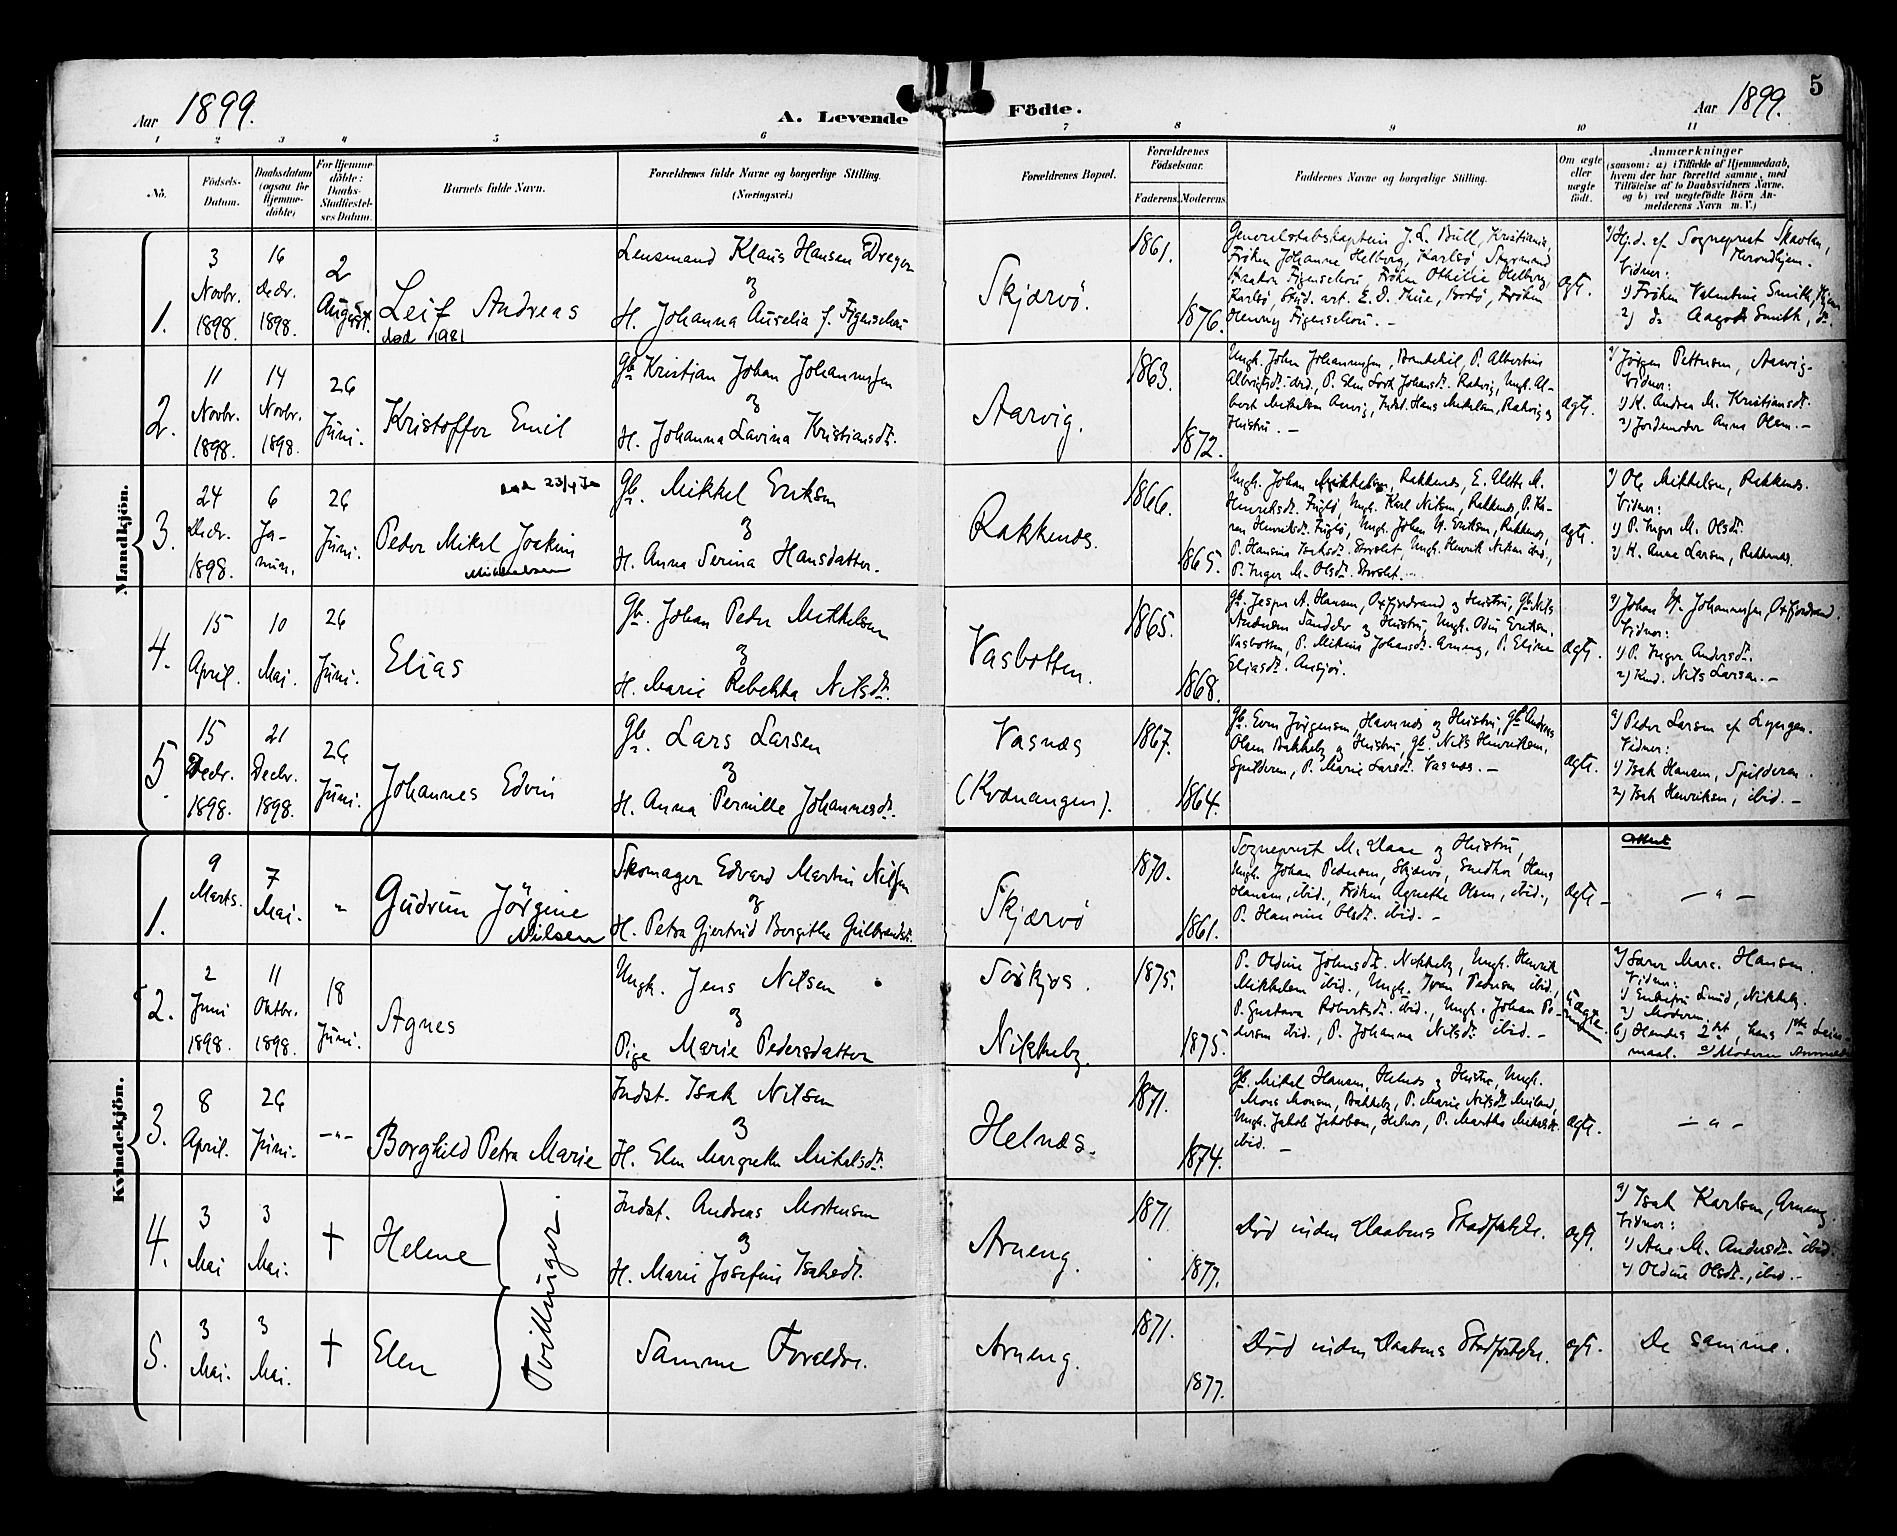 Aar 1899.
A. Levende Födte.
Aar 1899.
5
1 2 3 4 5 6 7 8 9 10 11
No.
Födsels-Datum.
Daabsdatum (ogsaa for Hjemmedöbte)
For Hjemmedöbte: Daabs-Stadfæstelses Datum.
Barnets fulde Navn.
Forældrenes fulde Navne og borgerlige Stilling. (Næringsvei.)
Forældrenes Bopæl.
Forældrenes Födselsaar.
Faderens. Moderens.
Faddernes Navne og borgerlige Stilling.
Om ægte eller uægte födt.
Anmærkninger
(saasom: a) i Tilfælde af Hjemmedaab, hvem der har forrettet samme, med Tilföielse af to Daabsvidners Navne, og b) ved uægtefödte Börn Anmelderens Navn m. V.)
Mandkjön.
1.
3 Novbr. 1898.
16 Decbr. 1898.
2 August.
Leif Andreas
død 1981
Lensmand Klaus Hansen Dreyer
&
H. Johanna Aurelia f. Figenschou
Skjærvö.
1861.
1876.
Generalstabskaptein J. L. Bull, Kristiania, Fröken Johanne Helberg, Karlsö, Styrmand Figenschou, Fröken Othilie Helberg, Karlsö, Stud. art. E. D. Bodö, Fröken Henny Figenschou. –
ægt.
a) Hj.d. af Sogneprest Skavlan, Throndhjem.
Vidner:
1) Fröken Valentine Smith,
2) do Aagot Smith, do.
2.
11 Novbr. 1898.
14 Novbr. 1898.
26 Juni.
Kristoffer Emil
Gb. Kristian Johan Johannessen
&
H. Johanna Lavina Kristiansdt.
Aarvig.
1863.
1872.
Ungk. John Johannessen, P. Albertine P. Elen Johansdt. Ravig, Ungk. Albert Mikkelsen Aarvig, Indst. Hans Mikelsen, Ravig og Hustru. –
ægt.
a) Jörgen Pettersen, Aarvig.
Vidner:
1) K. Andrea M. Kristiansdt.
2) Jordemoder Anna Olsen. –
3.
24 Decbr. 1898.
6 Januar.
26 Juni.
død 23/4
Peder Mikal Joakim
Mikkelsen
Gb. Mikkel Eriksen
&
H. Anna Serina Hansdatter.
Rakkenes.
1866.
1865.
Ungk. Johan Mikkelsen, Rakkenes, E. Aletta M. Henriksdt. Fuglö, Ungk. Karl Nilsen, Rakkenes, P. Karen Henriksdt. Fuglö, Ungk. Johan U. Eriksen, Rakkenes, P. Hansina Storslet, Ungk. Henrik Nilsen ibid, P. Inger M. Olsdt. Storslet. –
ægt.
a) Ole Mikkelsen, Rakkenes.
Vidner:
1) P. Inger M. Olsdt.
2) K. Anne Larsen, Rakkenes.
4.
15 April.
10 Mai.
26 Juni.
Elias
Gb. Johan Peder Mikkelsen
&
H. Marie Rebekka Nilsdt.
Vasbotten.
1865.
1868.
Gb. Jesper A. Hansen, Oxfjordvand og Hustru, Gb. Nils Andersen og Hustru, Ungk. Eriksen, Vasbotten, P. Mikine Johansdt. Arneng, P. Elisine Eliasdt.
ægt.
a) Johan Johannessen, Oxfjordvand.
Vidner:
1) P. Inger Andersdt.
2) Nils Larsen. –
5.
15 Decbr. 1898.
21 Decbr. 1898.
26 Juni.
Johannes Edvin
Gb. Lars Larsen
&
H. Anna Pernille Johannesdt.
Vasnæs
(Kvænangen).
1867.
1864.
Gb. Even Jörgensen, Havnnæs og Hustru, Gb. Andreas Olsen Bakkeby og Hustru, Gb. Nils Henriksen, Spilderen, P. Marie Larsdt. Vasnæs. –
ægt.
a) Peder Larsen af Lyngen.
Vidner:
1) Isak Hansen, Spilderen.
2) Isak Henriksen, ibid. –
Kvindekjön.
1.
9 Marts.
7 Mai.
"
Gudrun Jörgine
Nilsen
Skomager Edvard Martin Nilssen
&
H. Petra Gjertrud Borgitha Gulbrandsdt.
Skjærvö
1870.
1861.
Sogneprest M. Aas og Hustru, Ungk. Johan Pedersen, Skjærvö, Snedker Hans Hansen, ibid., Fröken Agnethe Olsen, ibid., P. Hansine Olsdt. ibid. –
ægt.
Attest
– " –
2.
2 Juni 1898.
11 Oktbr. 1898.
18 Juni.
Agnes
Ungk. Jens Nilsen
&
Pige Marie Pedersdatter
Sörkjos.
Nikkeby.
1875.
1875.
P. Oldine Johnsdt. Nikkeby, Ungk. Henrik Mikkelsen ibid., Ungk. Iver Pedersen ibid., P. Gustava Robertsdt. ibid., Ungk. Johan Pedersen ibid., P. Johanna Nilsdt. ibid. –
Uægte.
a) Hansen.
Vidner:
1) Enkefru Lund, Nikkeby.
2) Moderen.
b) Hendes 2det, hans 1ste Leiermaal. Moderen
3.
8 April.
26 Juni.
–"–
Borghild Petra Marie
Indst. Isak Nilsen
&
H. Elen Margrethe Mikalsdt.
Helnæs.
1871.
1874.
Gb. Mikal Hansen, Helnæs og Hustru, Ungk. Mons Monsen, Bakkeby, P. Marie Nilsdt. Meiland, Ungk. Jakob Jakobsen, Helnæs, P. Martha Mikalsdt. ibid. –
ægt.
– " –
4.
3 Mai
3 Mai.
†
Helene
Tvillinger.
Indst. Andreas Mortensen
&
H. Marie Josefine Isaksdt.
Arneng.
1871.
1877.
Död inden Daabens Stadfæstelse.
ægt.
a) Isak Karlsen, Arneng.
Vidner:
1) Ane M. Andersdt. ibid.
2) Oldine Olsdt., ibid. –
5.
3 Mai.
3 Mai.
†
Elen
Samme Forældre.
Arneng.
1871.
1877.
Död inden Daabens Stadfæstelse.
ægt.
De samme.